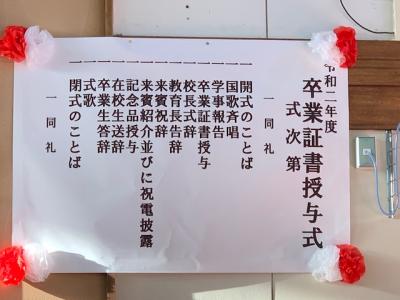 令和二年度
卒業証書授与式
式次第
一同礼
一開式のことば
一国歌斉唱
一学事報告
一卒業証書授与
一校長式辞
一教育長告辞
一来賓祝辞
一来賓紹介並びに祝電披露
一記念品授与
一在校生送辞
一卒業生答辞
一式歌
一閉式のことば
一同礼